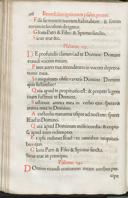 Filii servorum tuorum habitabunt: & semen
eorum in seculum dirigetur.
Gloria Patri & Filio: & Spiritui sancto.
Sicut erat &c.
Psalmus 129.
DE profundis clamavi ad te Domine: Domine
exaudi vocem meam.
Fiant aures tuae intendentes: in vocem depreca-
tionis meae.
Si iniquitates observaveris Domine: Domine
quis sustinebit?
Quia apud te propitiatio est: & propter legem
tuam sustinui te Domine.
Sustinuit anima mea in verbo eius: speravit
anima mea in Domino.
A custodia matutina usque ad noctem: speret
Israel in Domino.
Quia apud Dominum misericordia: & copio-
sa apud eum redemptio.
Et ipse redimet Israel: ex omnibus iniquitati-
bus eius.
Gloria Patri & Filio: & Spiritui sancto.
Sicut erat in principio.
Psalmus 142.
Domine exaudi orationem meam: auribus per-